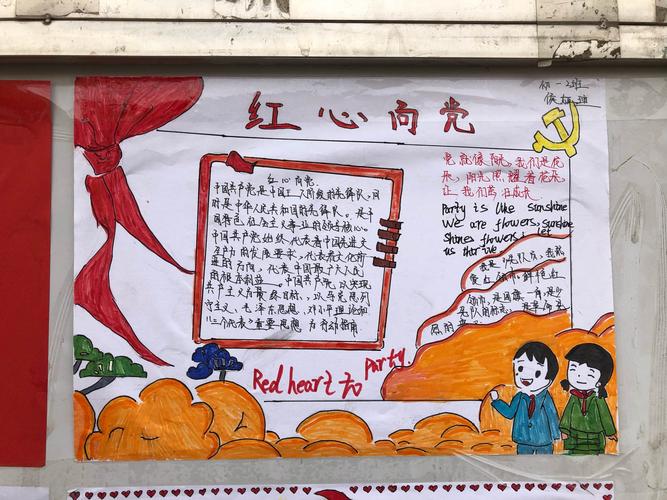 红心向党
初一2班
红心向党
中国共产党是中国工人阶级的先锋队,同
时是中华人民共和国的先锋队。是中
国特色社会主义事业的领导核心。
中国共产党始终代表着中国先进文
生产力的发展要求,代表着文化所
进的方向,代表中国最广大人民
的根本利益
中国共产党,以实现
共产主义为最终目标,以马克思列
宁主义、毛泽东思想、邓小平理论和
三个代表重要思想为行动指南
党就像阳光,我们是花
朵,阳光照耀着花朵,
让我们茁壮成长
Party is like sunshine
We are flowers, sunshine
shines flowers, let
us thrive
我是少先队员,我热
爱红领巾鲜艳红
领巾,是国旗一角,是少
先队的标志,
Red heart to party.